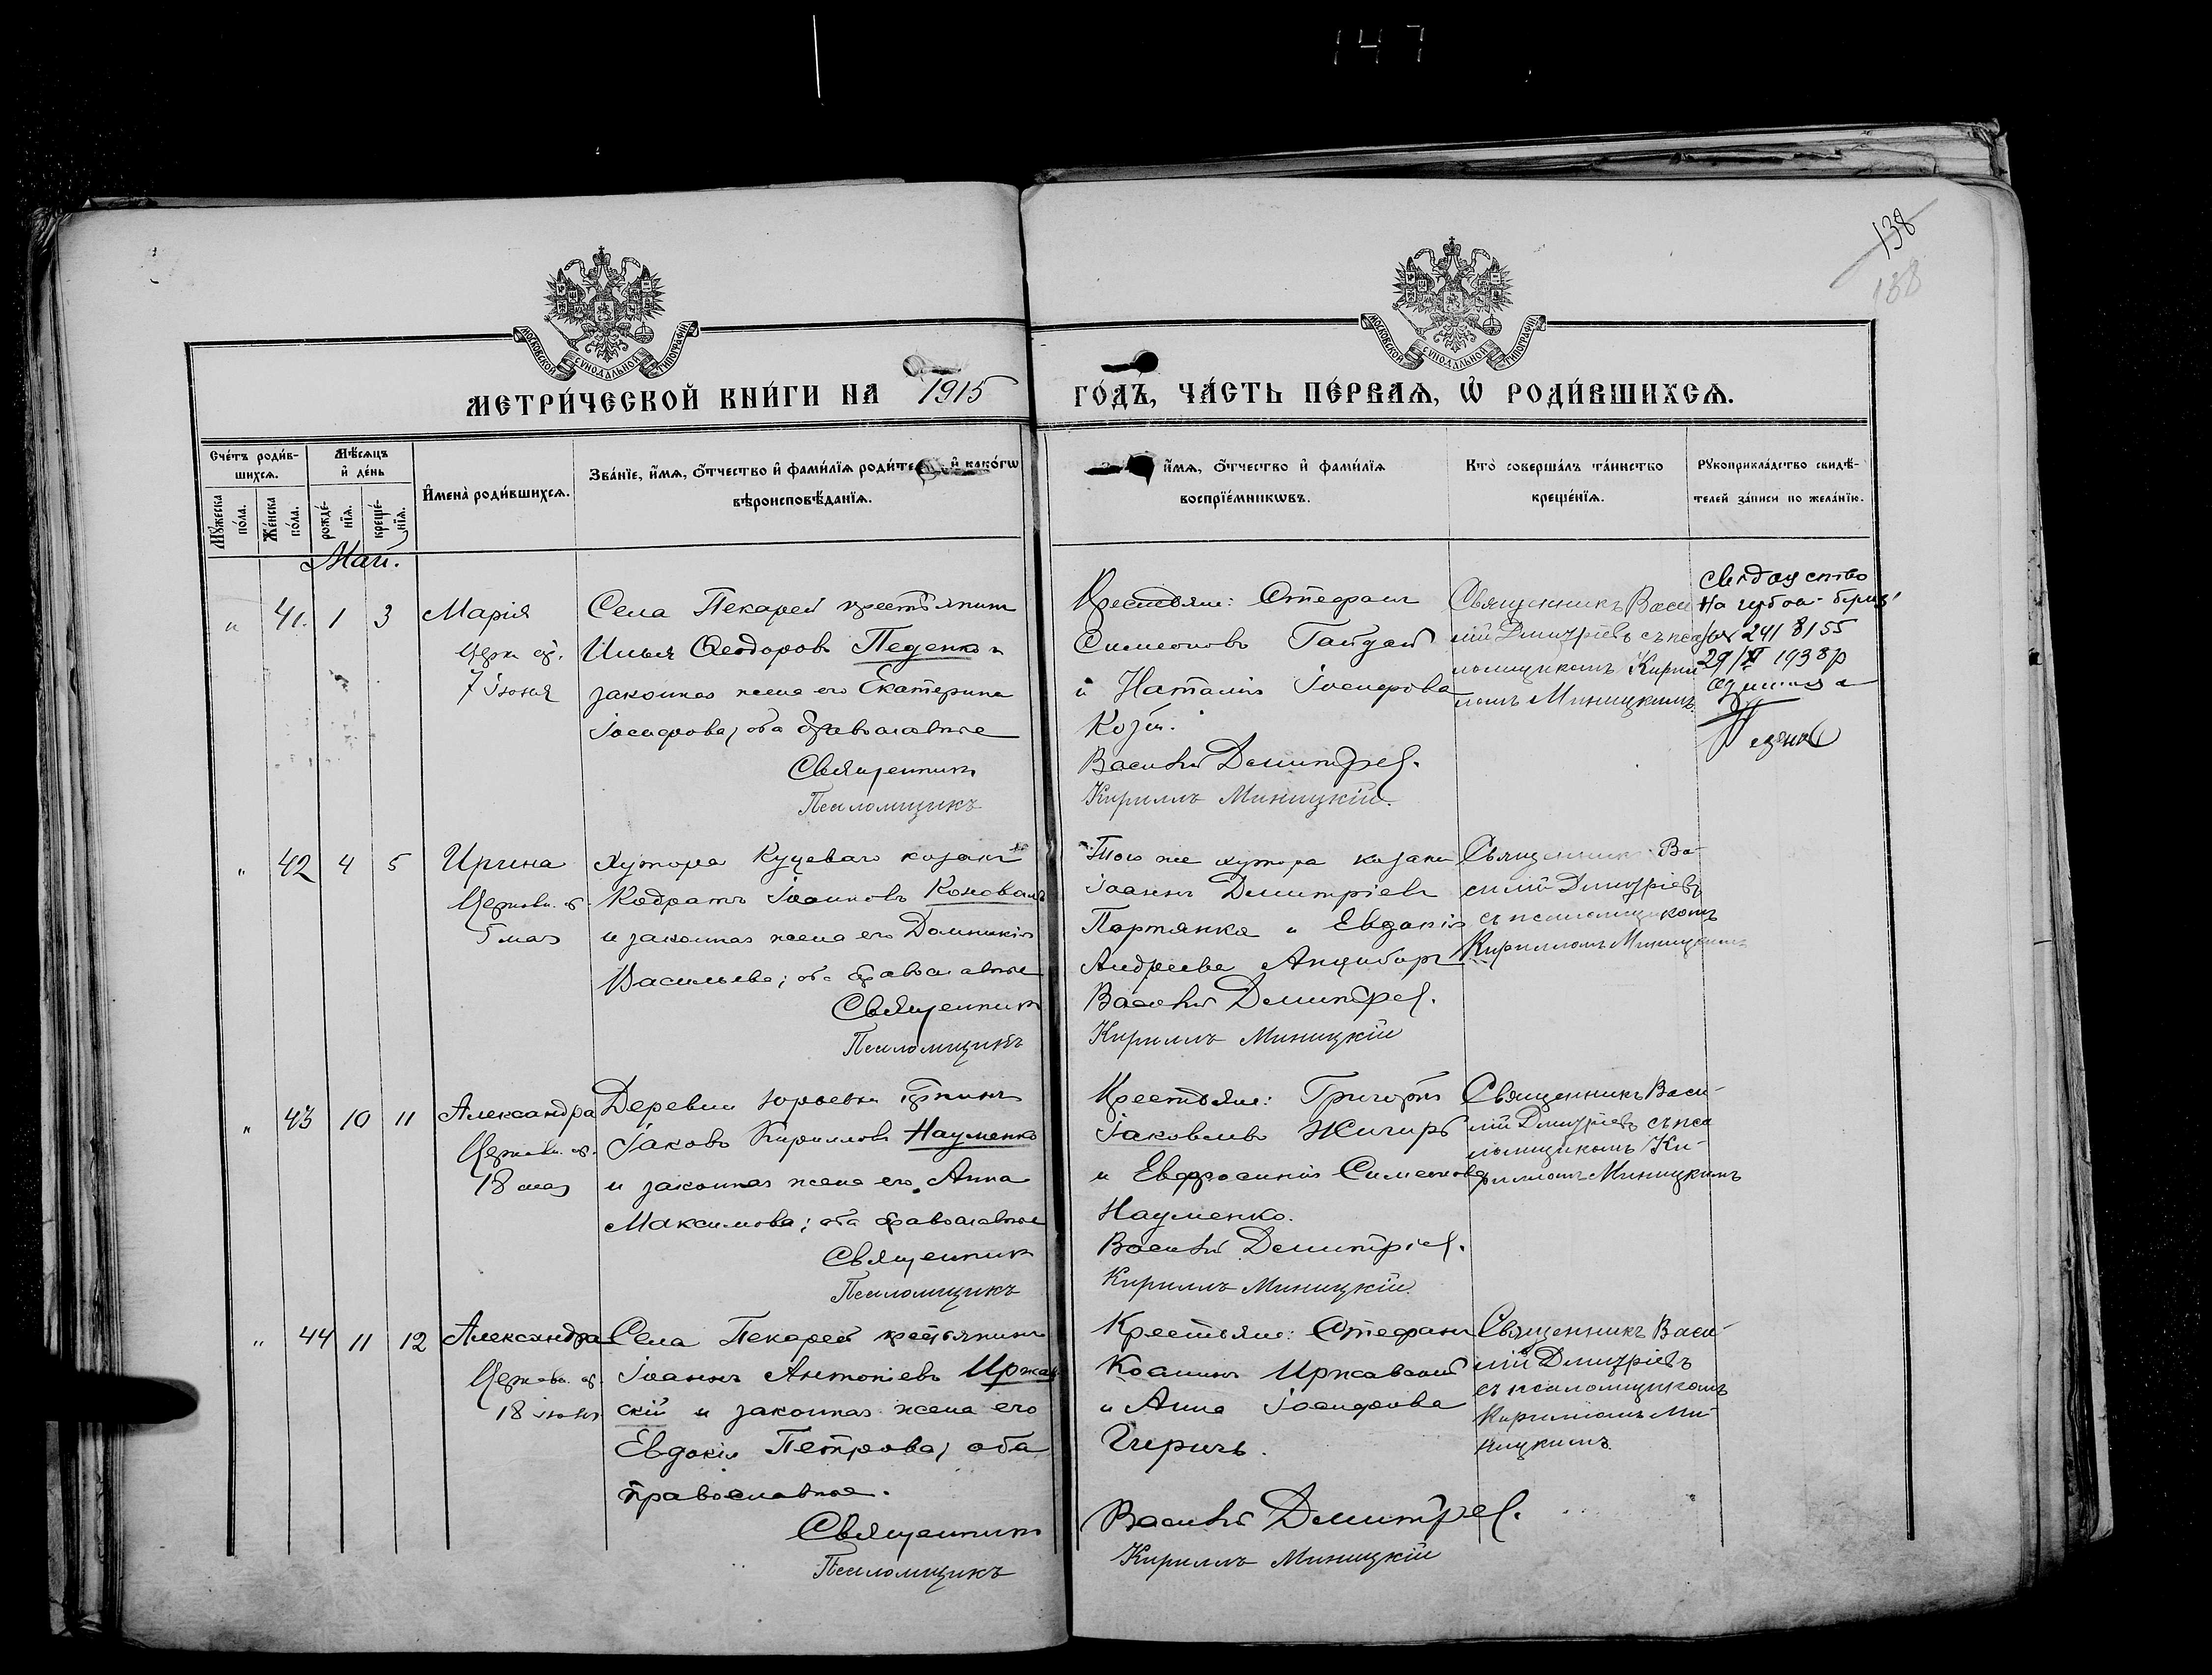 147
138
138
МОСКОВСКОЙ СѴНОДАЛЬНОЙ ТИПОГРАФІИ
МОСКОВСКОЙ СѴНОДАЛЬНОЙ ТИПОГРАФІИ
МЕТРИ́ЧЕСКОЙ КНИ́ГИ НА 1915 ГО́ДЪ, ЧА́СТЬ ПЕ́РВАѦ, Ѡ҆ РОДИ́ВШИХСѦ.
Сче́тъ роди́в-
шихсѧ.
Мꙋ́жеска по́ла.
Же́нска по́ла.
Мѣ́сѧцъ
и҆ де́нь
рожде́-
нїѧ.
креще́-
нїѧ.
И҆мена̀ роди́вшихсѧ.
Зва́нїе, и҆́мѧ, ѻ҆́тчество и҆ фами́лїѧ роди́те и҆ како́гѡ
вѣроисповѣ́данїѧ.
и҆́мѧ, ѻ҆́тчество и҆ фами́лїѧ
воспрїе́мникѡвъ.
Кто̀ соверша́лъ та́инство
креще́нїѧ.
Рꙋкоприкла́дство свидѣ́-
телей за́писи по жела́нїю.
Май.
" 41. 1 3 Марія
7 Іюня
Села Пекарей крестьянинъ
Илья Ѳеодоровъ Педенко и
законная жена его Екатерина
Іосифова, оба православные
Священникъ
Псаломщикъ
Крестьяне: Стефанъ
Симеоновъ Гайдай
и Наталія Іосифова
Козій.
Василій Димитріев.
Кириллъ Миницкій.
Священникъ Васи
лій Димитріевъ съ пса
ломщикомъ Кирил
ломъ Миницкимъ.
241 8155
29/ 1938р
" 42 4 5 Ирина
5 мая
Хутора Куцеваго козакъ
Кодратъ Іоанновъ Коновалъ
и законная жена его Домникія
Васильева; оба православные
Священникъ
Псаломщикъ
Того же хутора козаки
Іоаннъ Димитріевъ
Портянка и Евдокія
Андреева Анцибор
Василій Димитріев.
Кириллъ Миницкій
Священникъ Ва-
силій Димитріевъ
съ псаломщикомъ
Кирилломъ Миницкимъ
" 43 10 11 Александра
18 мая
Деревни Юрьевки
Іаковъ Кирилловъ Науменко
и законная жена его Анна
Максимова; оба православные
Священникъ
Псаломщикъ
Крестьяне: Григорій
Іаковлевъ Жигирь
и Евфросинія Симеонова
Науменко.
Василій Димитріев.
Кириллъ Миницкій.
Священникъ Васи-
лій Димитріевъ съ пса
ломщикомъ Ки-
рилломъ Миницкимъ
" 44 11 12 Александра
18 іюня
Села Пекарей крестьянинъ
Іоаннъ Антоніевъ Иржав
скій и законная жена его
Евдокія Петрова; оба
православные.
Священникъ
Псаломщикъ
Крестьяне: Стефанъ
Косминъ Иржавскій
и Анна Іосифова
Василій Димитріев.
Кириллъ Миницкій
Священникъ Васи-
лій Димитріевъ
съ псаломщикомъ
Кирилломъ Ми-
ницкимъ.